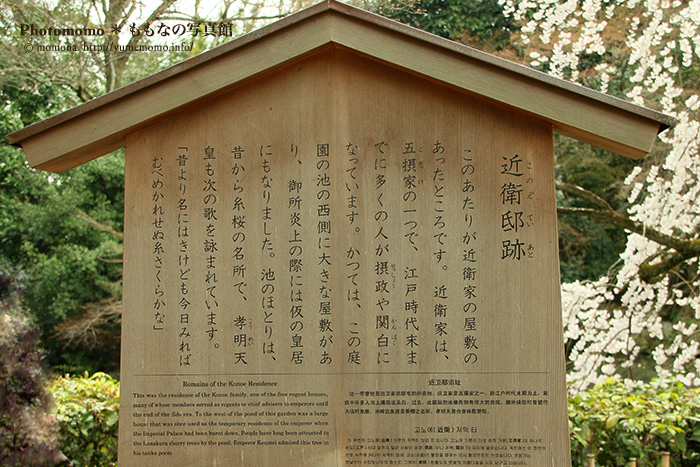 Photomomo * ももなの写真館
© momona http://yumemomo.info/
近衛邸跡
このえてい あと
このあたりが近衛家の屋敷の
あったところです。近衛家は、
五摂家の一つで、江戸時代末ま
でに多くの人が摂政や関白に
なっています。かつては、この庭
園の池の西側に大きな屋敷があ
り、御所炎上の際には仮の皇居
にもなりました。池のほとりは、
昔から糸桜の名所で、孝明天
皇も次の歌を詠まれています。
「昔より名にはきけども今日みれば
むべめかれせぬ糸さくらかな」
Remains of the Konoe Residence
This was the residence of the Konoe family, one of the five regent houses,
many of whose members served as regents or chief advisors to emperors until
the end of the Edo era. To the west of the pond of this garden was a large
house that was once used as the temporary residence of the emperor when
the Imperial Palace had been burnt down. People have long been attracted to
the Itozakura cherry trees by the pond. Emperor Koumei admired this tree in
his tanka poem.
近卫邸遗址
고노에(近衛) 저택 터